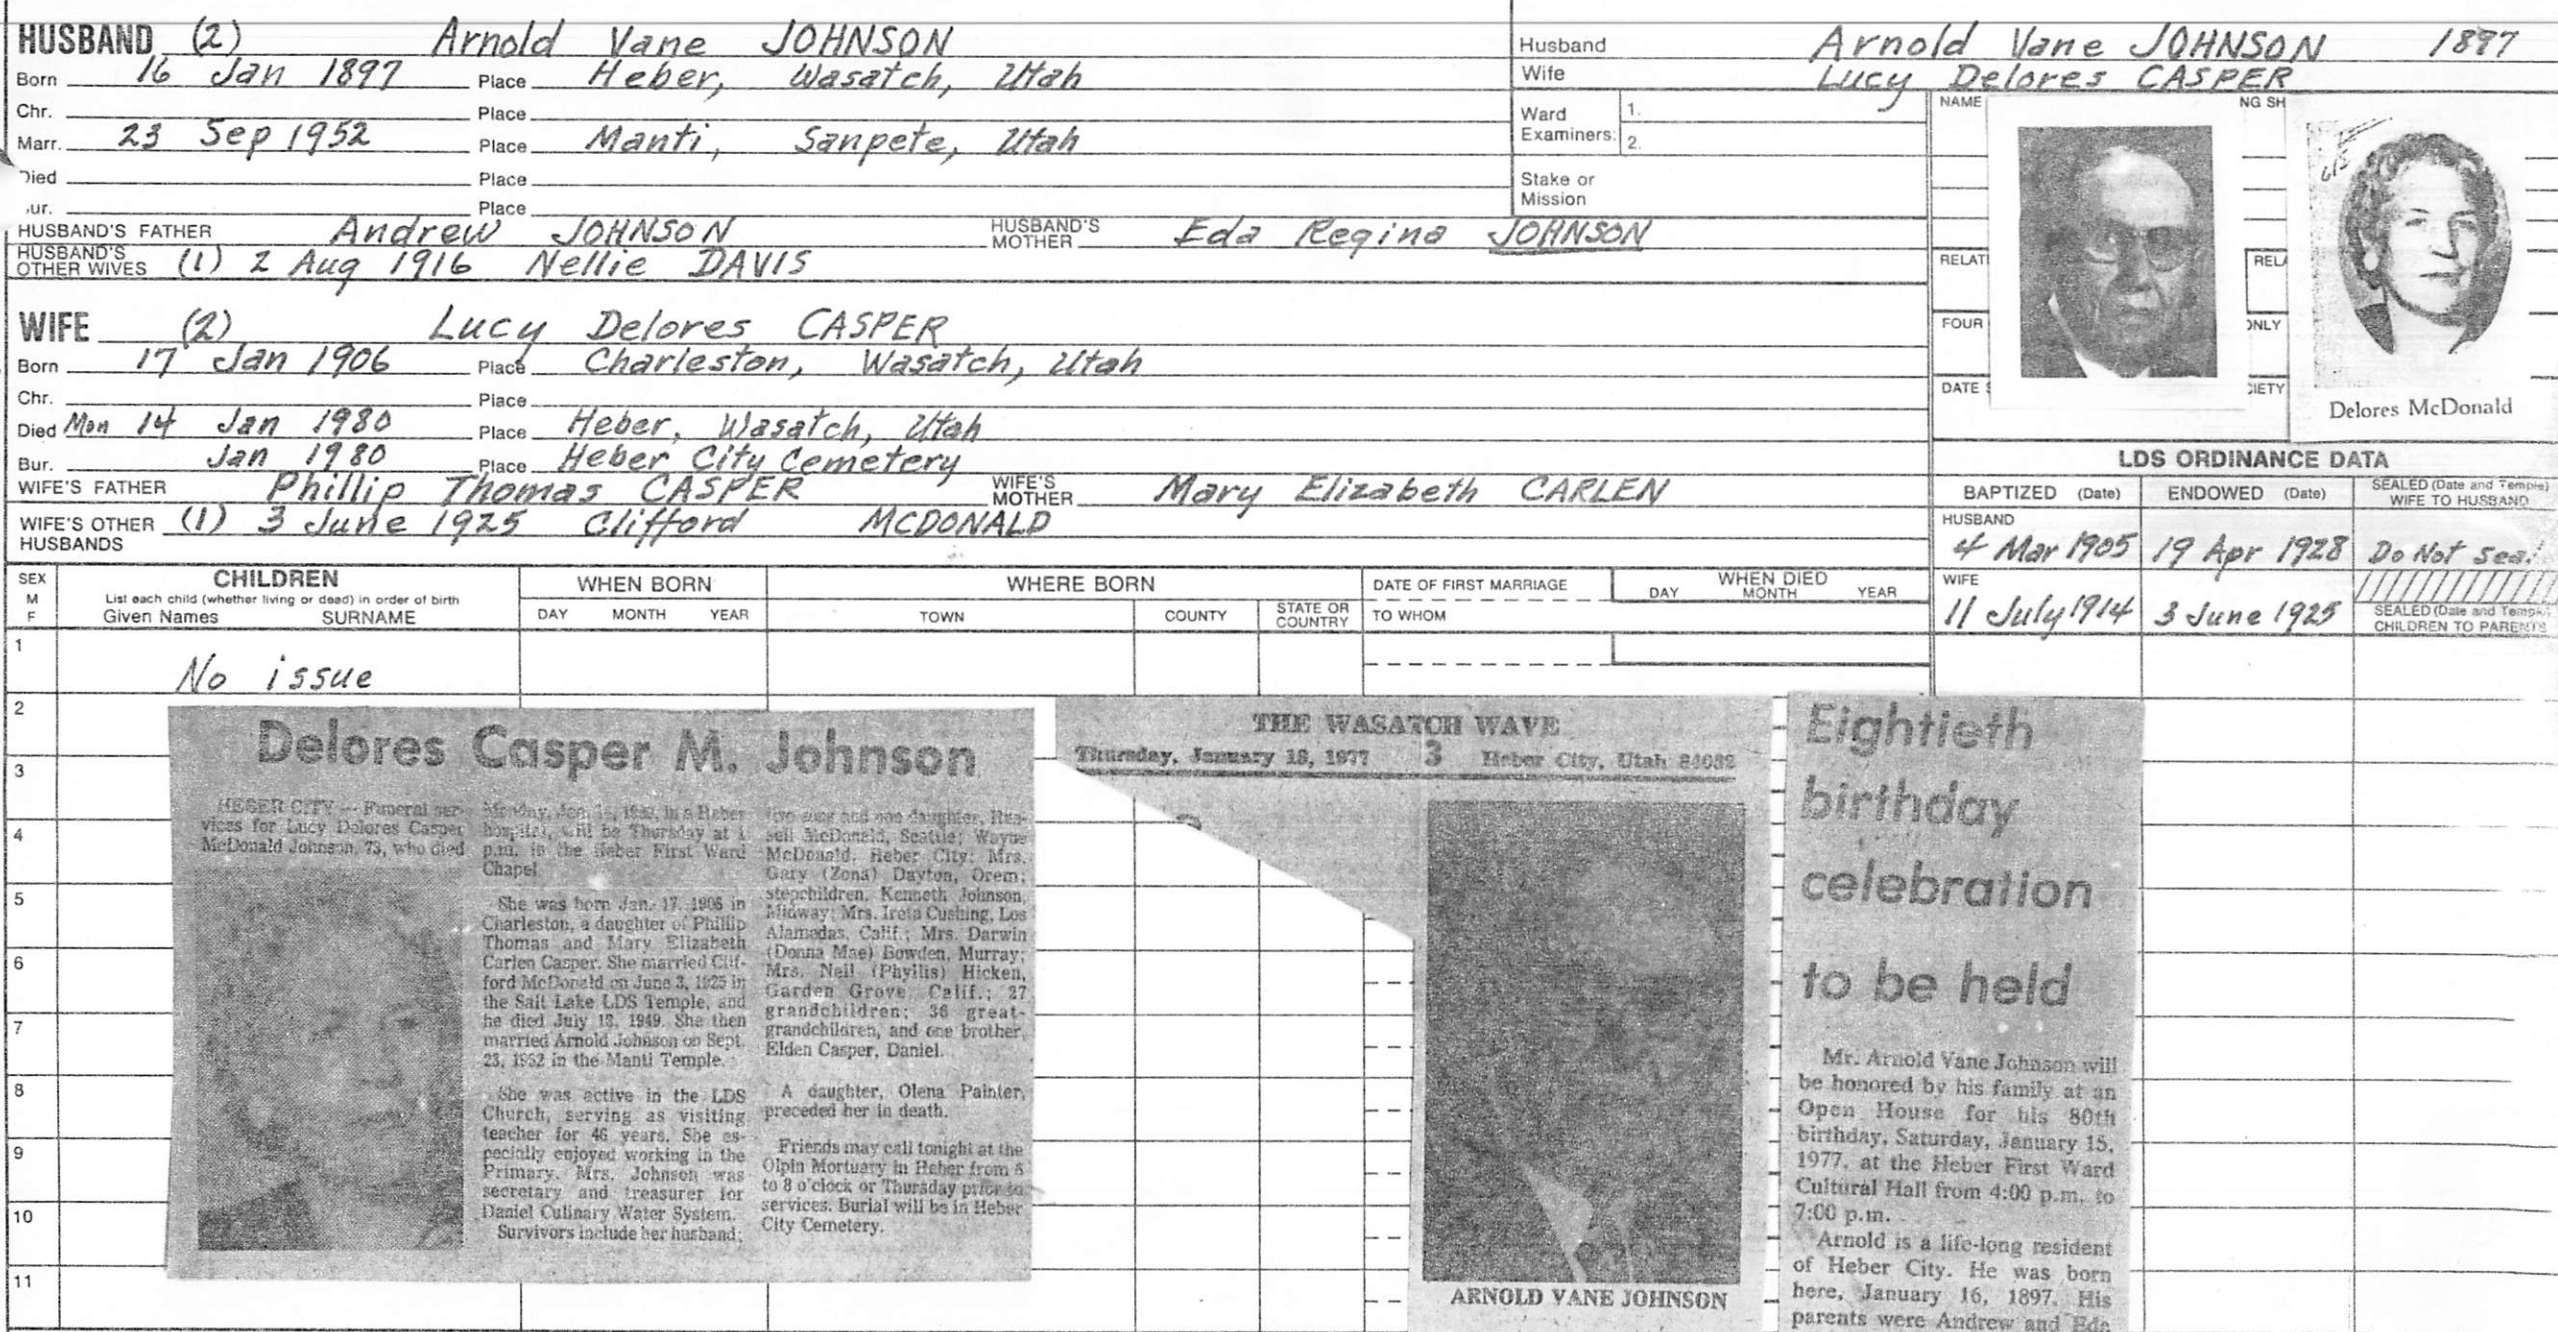 HUSBAND (2) Arnold Vane JOHNSON
Born 16 Jan 1897 Place Heber, Wasatch, Utah
Chr. Place
Marr. 23 Sep 1952 Place Manti, Sanpete, Utah
Died Place
ur. Place
HUSBAND'S FATHER Andrew JOHNSON HUSBAND'S MOTHER Eda Regina JOHNSON
HUSBAND'S OTHER WIVES (1) 2 Aug 1916 Nellie DAVIS
WIFE (2) Lucy Delores CASPER
Born 17 Jan 1906 Place Charleston, Wasatch, Utah
Chr. Place
Died Mon 14 Jan 1980 Place Heber, Wasatch, Utah
Bur. Jan 1980 Place Heber City Cemetery
WIFE'S FATHER Phillip Thomas CASPER WIFE'S MOTHER Mary Elizabeth CARLEN
WIFE'S OTHER HUSBANDS (1) 3 June 1925 Clifford MCDONALD
Husband Arnold Vane JOHNSON 1897
Wife Lucy Delores CASPER
Ward Examiners: 1.
2.
Stake or Mission
NAME NG SH
RELAT RELA
FOUR ONLY
DATE S CIETY
615
Delores McDonald
LDS ORDINANCE DATA
BAPTIZED (Date) ENDOWED (Date) SEALED (Date and Temple) WIFE TO HUSBAND
HUSBAND
4 Mar 1905 19 Apr 1928 Do Not Seal
WIFE
11 July 1914 3 June 1925 SEALED (Date and Temple) CHILDREN TO PARENTS
SEX M F
CHILDREN
List each child (whether living or dead) in order of birth
Given Names SURNAME
WHEN BORN
DAY MONTH YEAR
WHERE BORN
TOWN COUNTY STATE OR COUNTRY
DATE OF FIRST MARRIAGE
TO WHOM
WHEN DIED
DAY MONTH YEAR
1
No issue
2
3
4
5
6
7
8
9
10
11
Delores Casper M. Johnson
HEBER CITY — Funeral ser-
vices for Lucy Delores Casper
McDonald Johnson, 73, who died
Monday, Jan. 14, 1980, in a Heber
hospital, will be Thursday at 1
p.m. in the Heber First Ward
Chapel
She was born Jan. 17, 1906 in
Charleston, a daughter of Phillip
Thomas and Mary Elizabeth
Carlen Casper. She married Clif-
ford McDonald on June 3, 1925 in
the Salt Lake LDS Temple, and
he died July 13, 1949. She then
married Arnold Johnson on Sept.
23, 1952 in the Manti Temple.
She was active in the LDS
Church, serving as visiting
teacher for 46 years. She es-
pecially enjoyed working in the
Primary. Mrs. Johnson was
secretary and treasurer for
Daniel Culinary Water System.
Survivors include her husband;
two sons and one daughter, Rus-
sell McDonald, Seattle; Wayne
McDonald, Heber City; Mrs.
Gary (Zona) Dayton, Orem;
stepchildren, Kenneth Johnson,
Midway; Mrs. Ireta Cushing, Los
Alamedas, Calif.; Mrs. Darwin
(Donna Mae) Bowden, Murray;
Mrs. Neil (Phyllis) Hicken,
Garden Grove, Calif.; 27
grandchildren; 36 great-
grandchildren, and one brother,
Elden Casper, Daniel.
A daughter, Olena Painter,
preceded her in death.
Friends may call tonight at the
Olpin Mortuary in Heber from 6
to 8 o'clock or Thursday prior to
services. Burial will be in Heber
City Cemetery.
THE WASATCH WAVE
Thursday, January 13, 1977 3 Heber City, Utah 84032
ARNOLD VANE JOHNSON
Eightieth
birthday
celebration
to be held
Mr. Arnold Vane Johnson will
be honored by his family at an
Open House for his 80th
birthday, Saturday, January 15,
1977, at the Heber First Ward
Cultural Hall from 4:00 p.m. to
7:00 p.m.
Arnold is a life-long resident
of Heber City. He was born
here, January 16, 1897. His
parents were Andrew and Eda